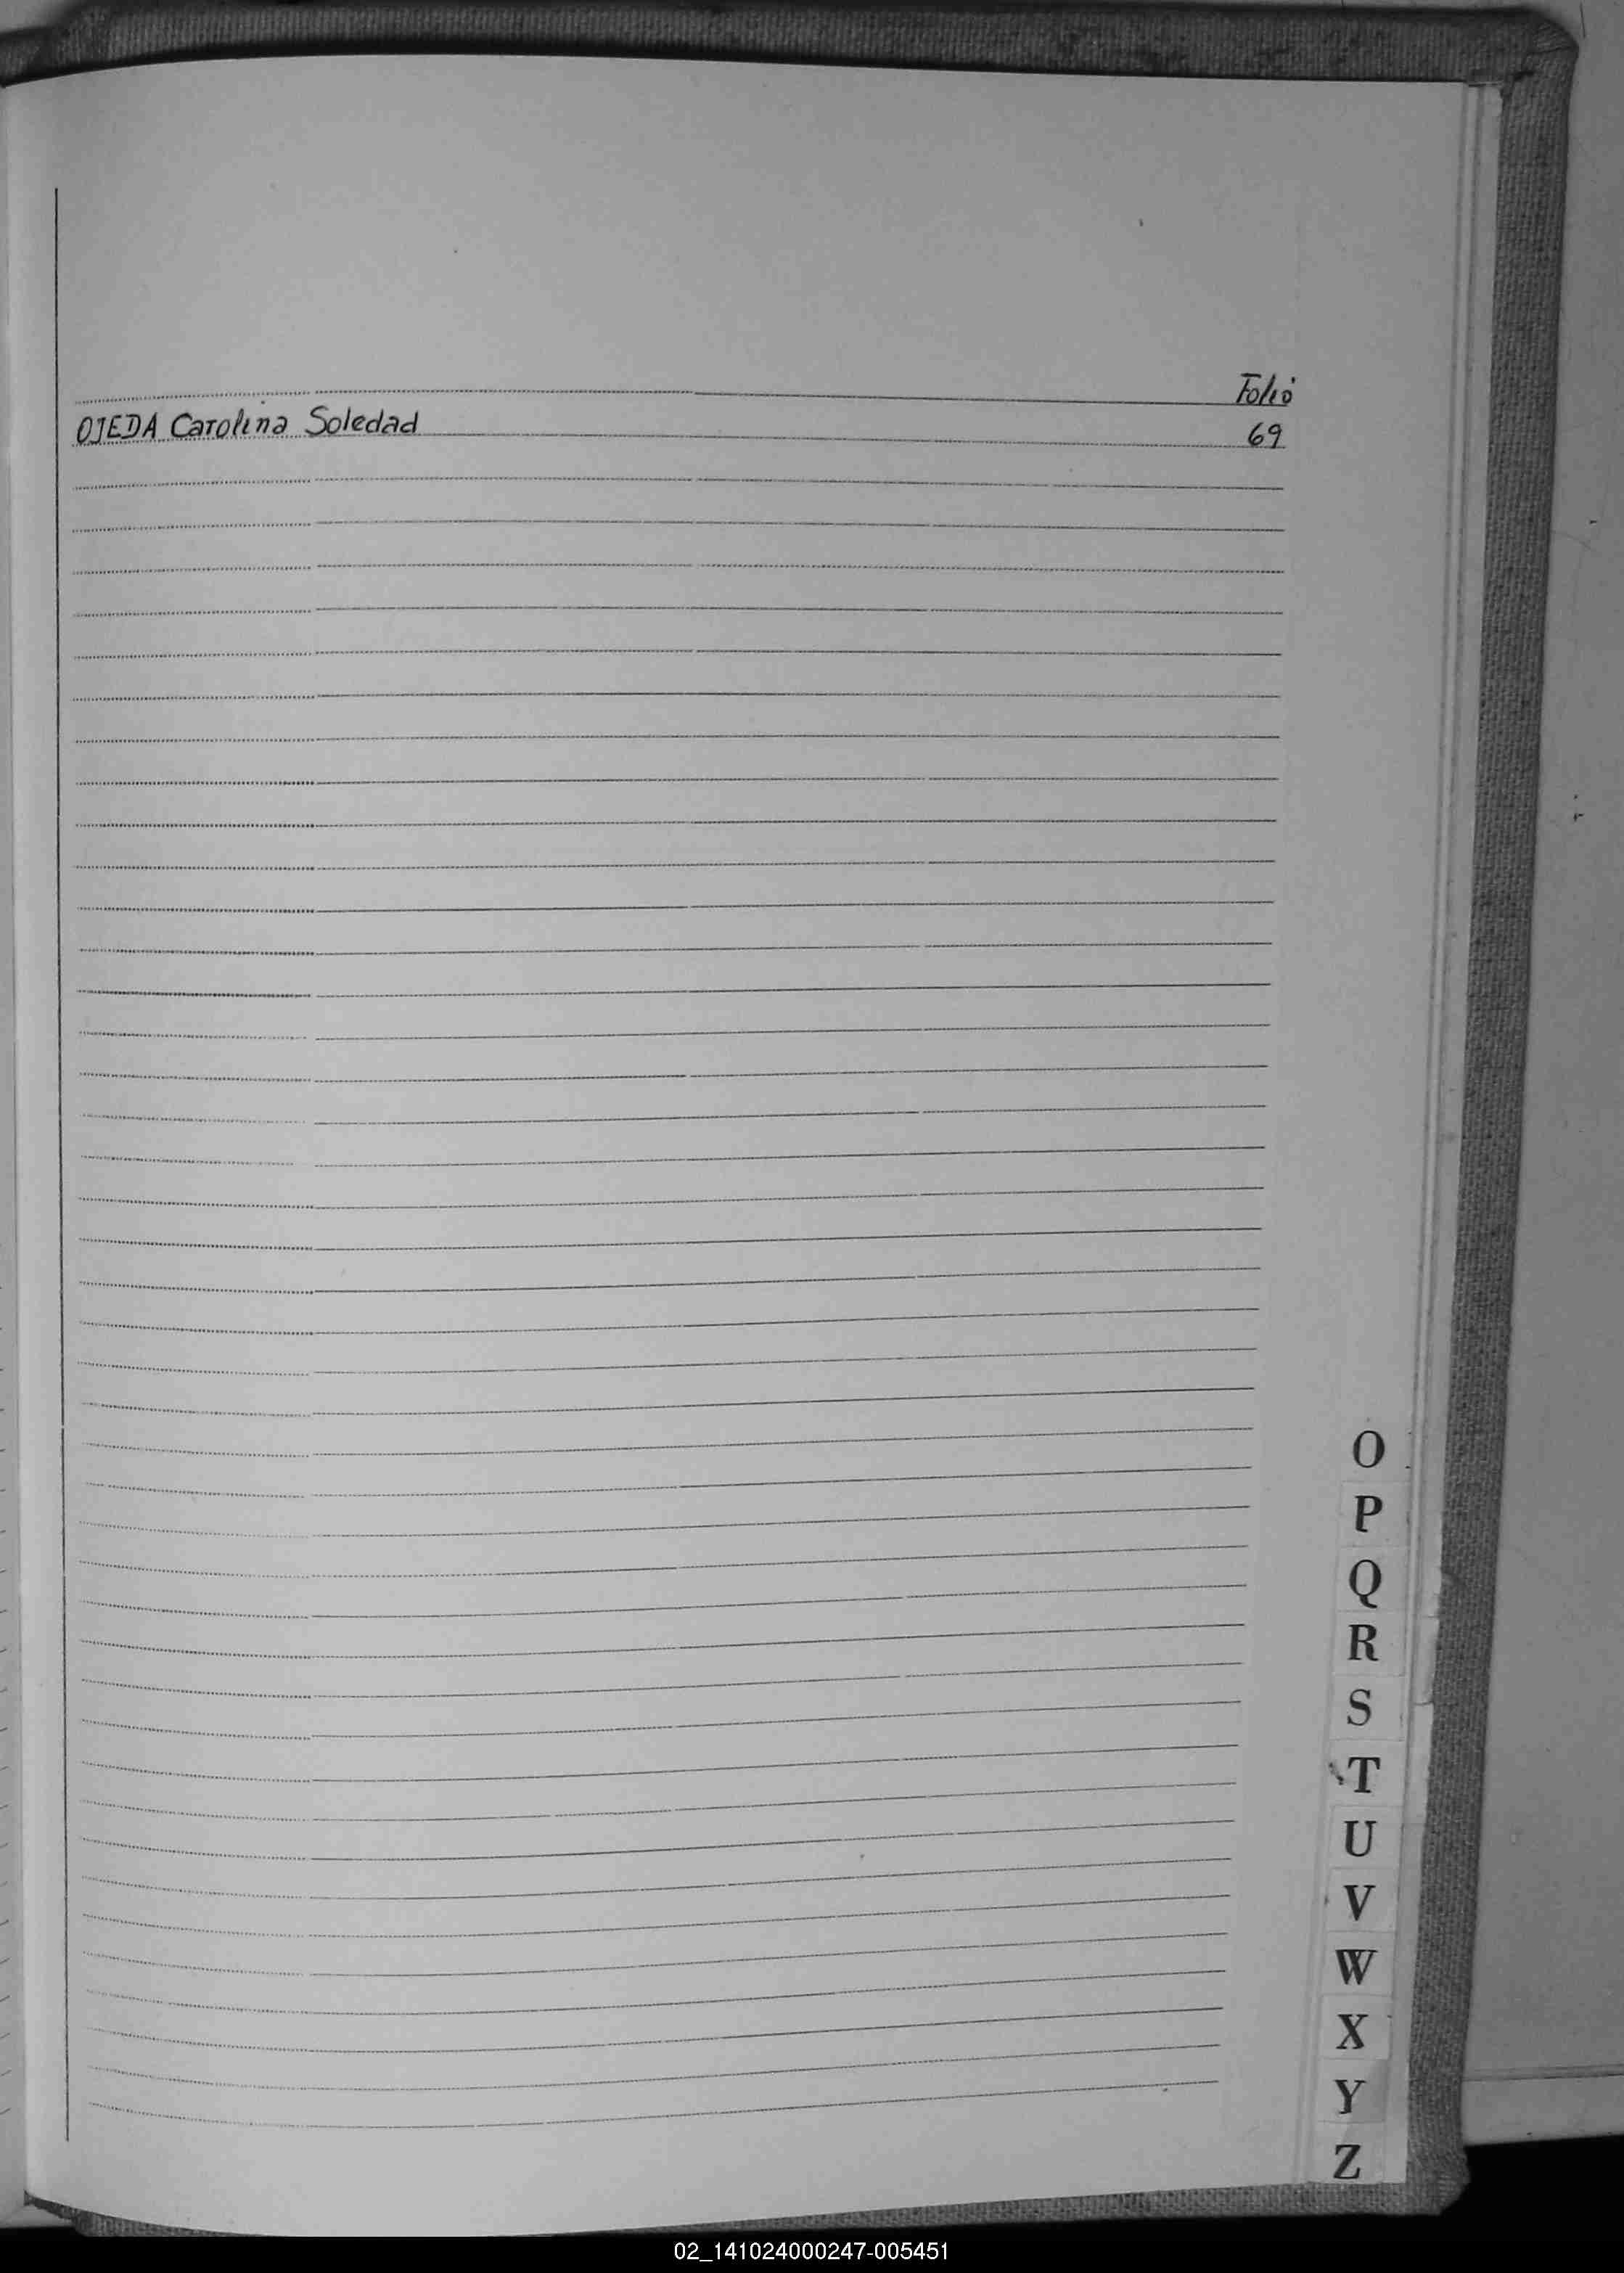 Folio
OJEDA Carolina Soledad 69
O
P
Q
R
S
T
U
V
W
X
Y
Z
02_141024000247-005451